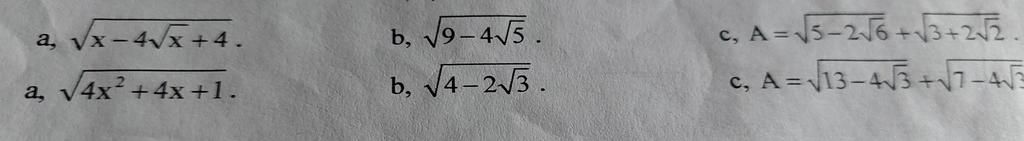 a, √(x − 4√x + 4) . b, √(9 − 4√5) . c, A = √(5 − 2√6) + √(3 + 2√2) .
a, √(4x² + 4x + 1) . b, √(4 − 2√3) . c, A = √(13 − 4√3) + √(7 − 4√3